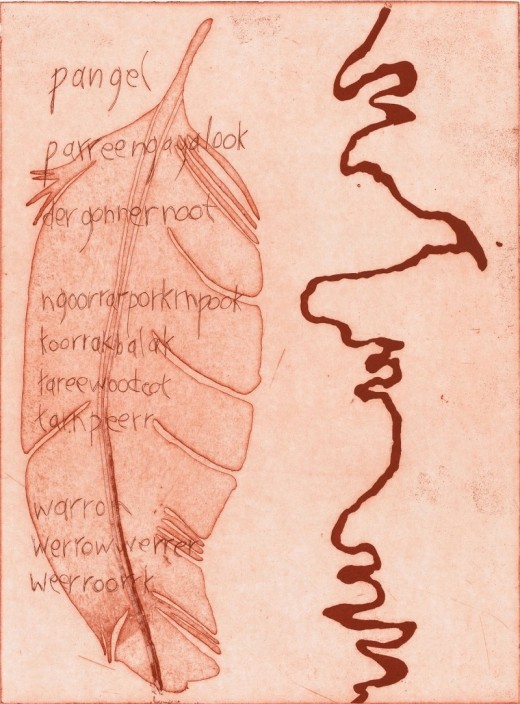 pangel
parreengayalook
dergonnernoot
ngoorrarporkrnpook
toorrakbalak
tareewootcot
tarkpeerr
warron
werrowwerrer
weerroorrk